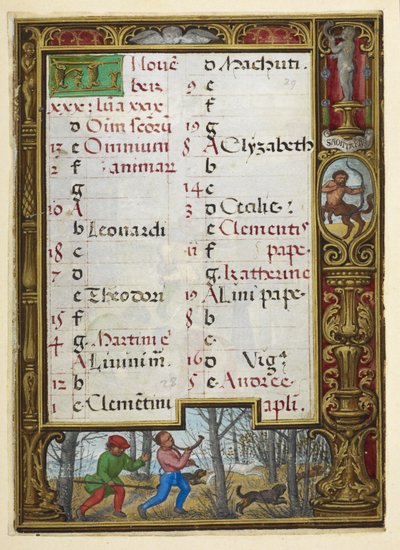 KL Nouē
ber
xxx: lūa xxix
d Oīm scōrū
13 e Omnium
2 f animarū
g
10 A
b Leonardi
18 c
7 d
e Theodori
15 f
4 g Martini e
A Liuini m.
12 b
1 c Clemētini
d Machuti.
9 e
f
19 g
8 A Elyzabeth
b
14 c
3 d Cecilie
e Clementis
11 f pape.
g Katherine
19 A Lini pape
8 b
c
16 d Vigᵃ
5 e Andree
apli
28
29